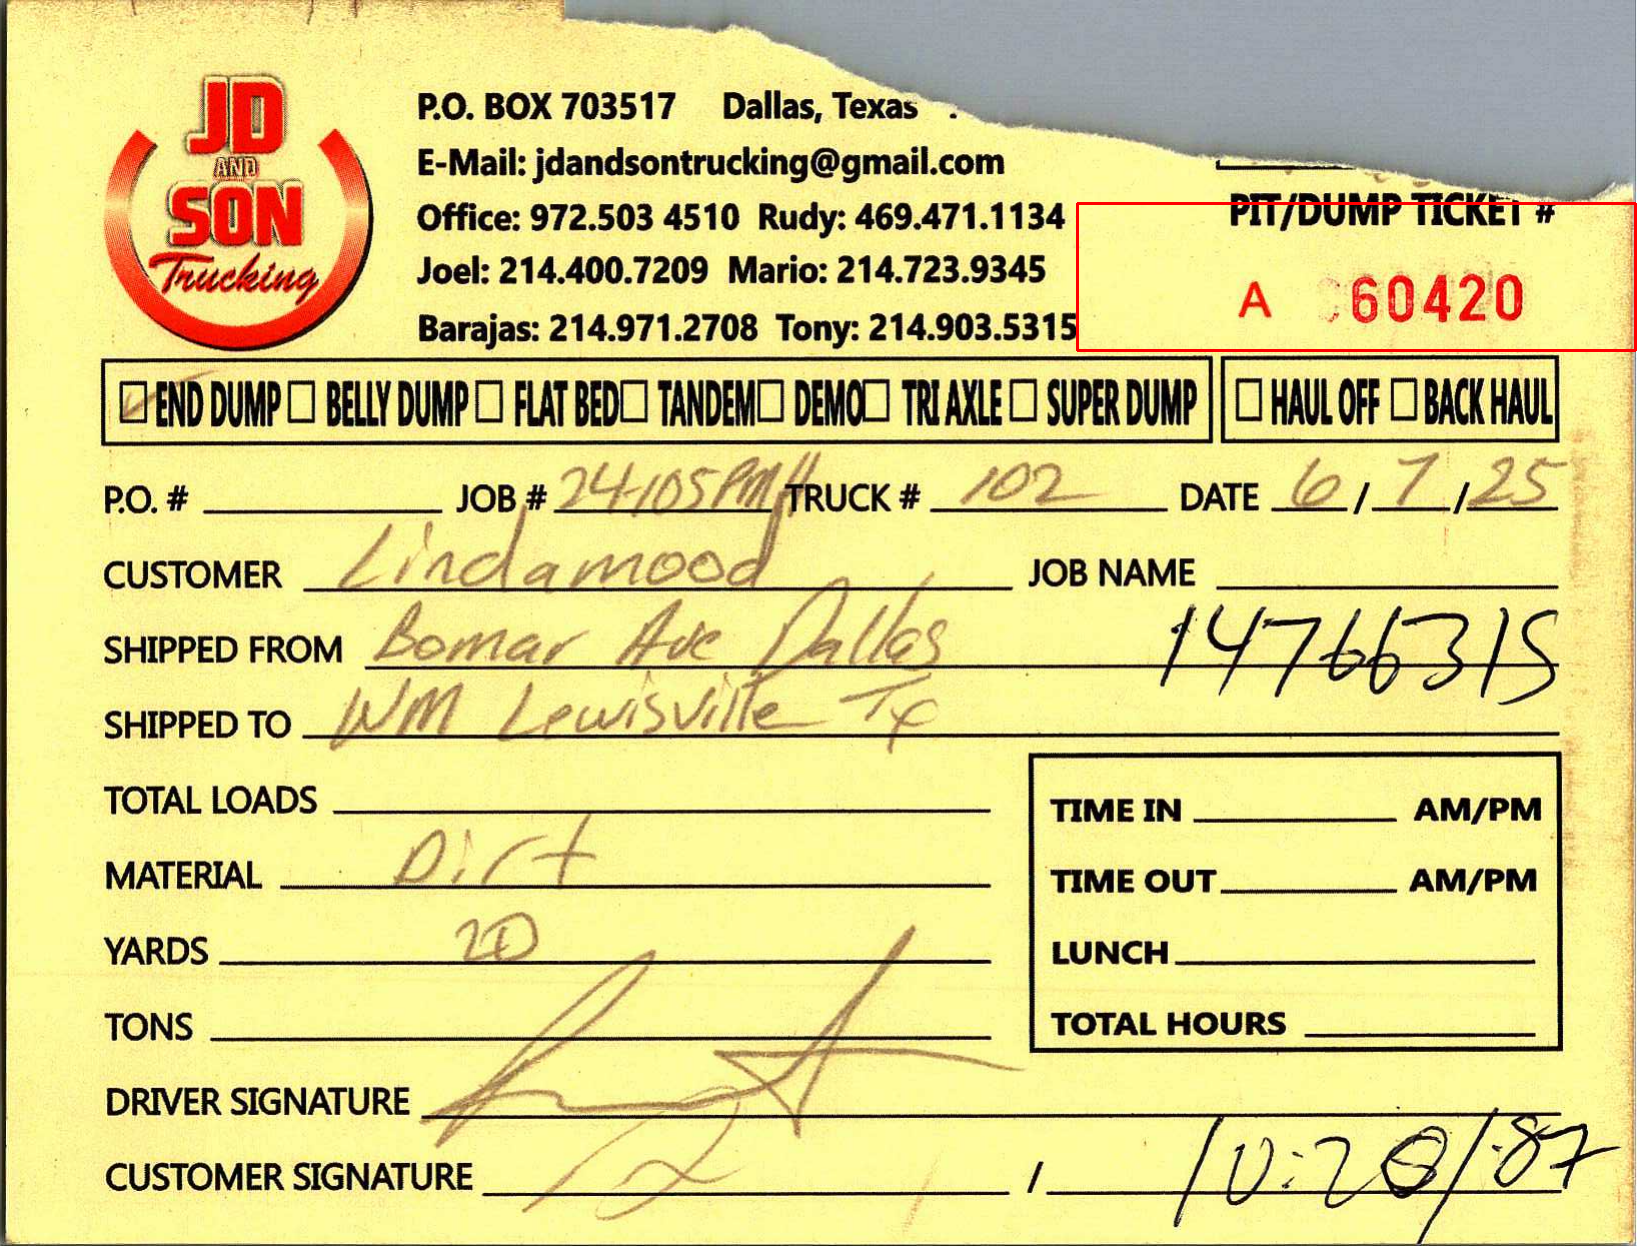 JD
AND
SON
Trucking
P.O. BOX 703517 Dallas, Texas
E-Mail: jdandsontrucking@gmail.com
Office: 972.503 4510 Rudy: 469.471.1134
Joel: 214.400.7209 Mario: 214.723.9345
Barajas: 214.971.2708 Tony: 214.903.5315
PIT/DUMP TICKET #
A 60420
END DUMP BELLY DUMP FLAT BED TANDEM DEMO TRI AXLE SUPER DUMP HAUL OFF BACK HAUL
P.O. # JOB # 24-105PMH TRUCK # 102 DATE 6/7/25
CUSTOMER Lindamood JOB NAME
SHIPPED FROM Bomar Ave Dallas 14766315
SHIPPED TO WM Lewisville Tx
TOTAL LOADS
MATERIAL Dirt
YARDS 20
TONS
DRIVER SIGNATURE
CUSTOMER SIGNATURE /
TIME IN AM/PM
TIME OUT AM/PM
LUNCH
TOTAL HOURS